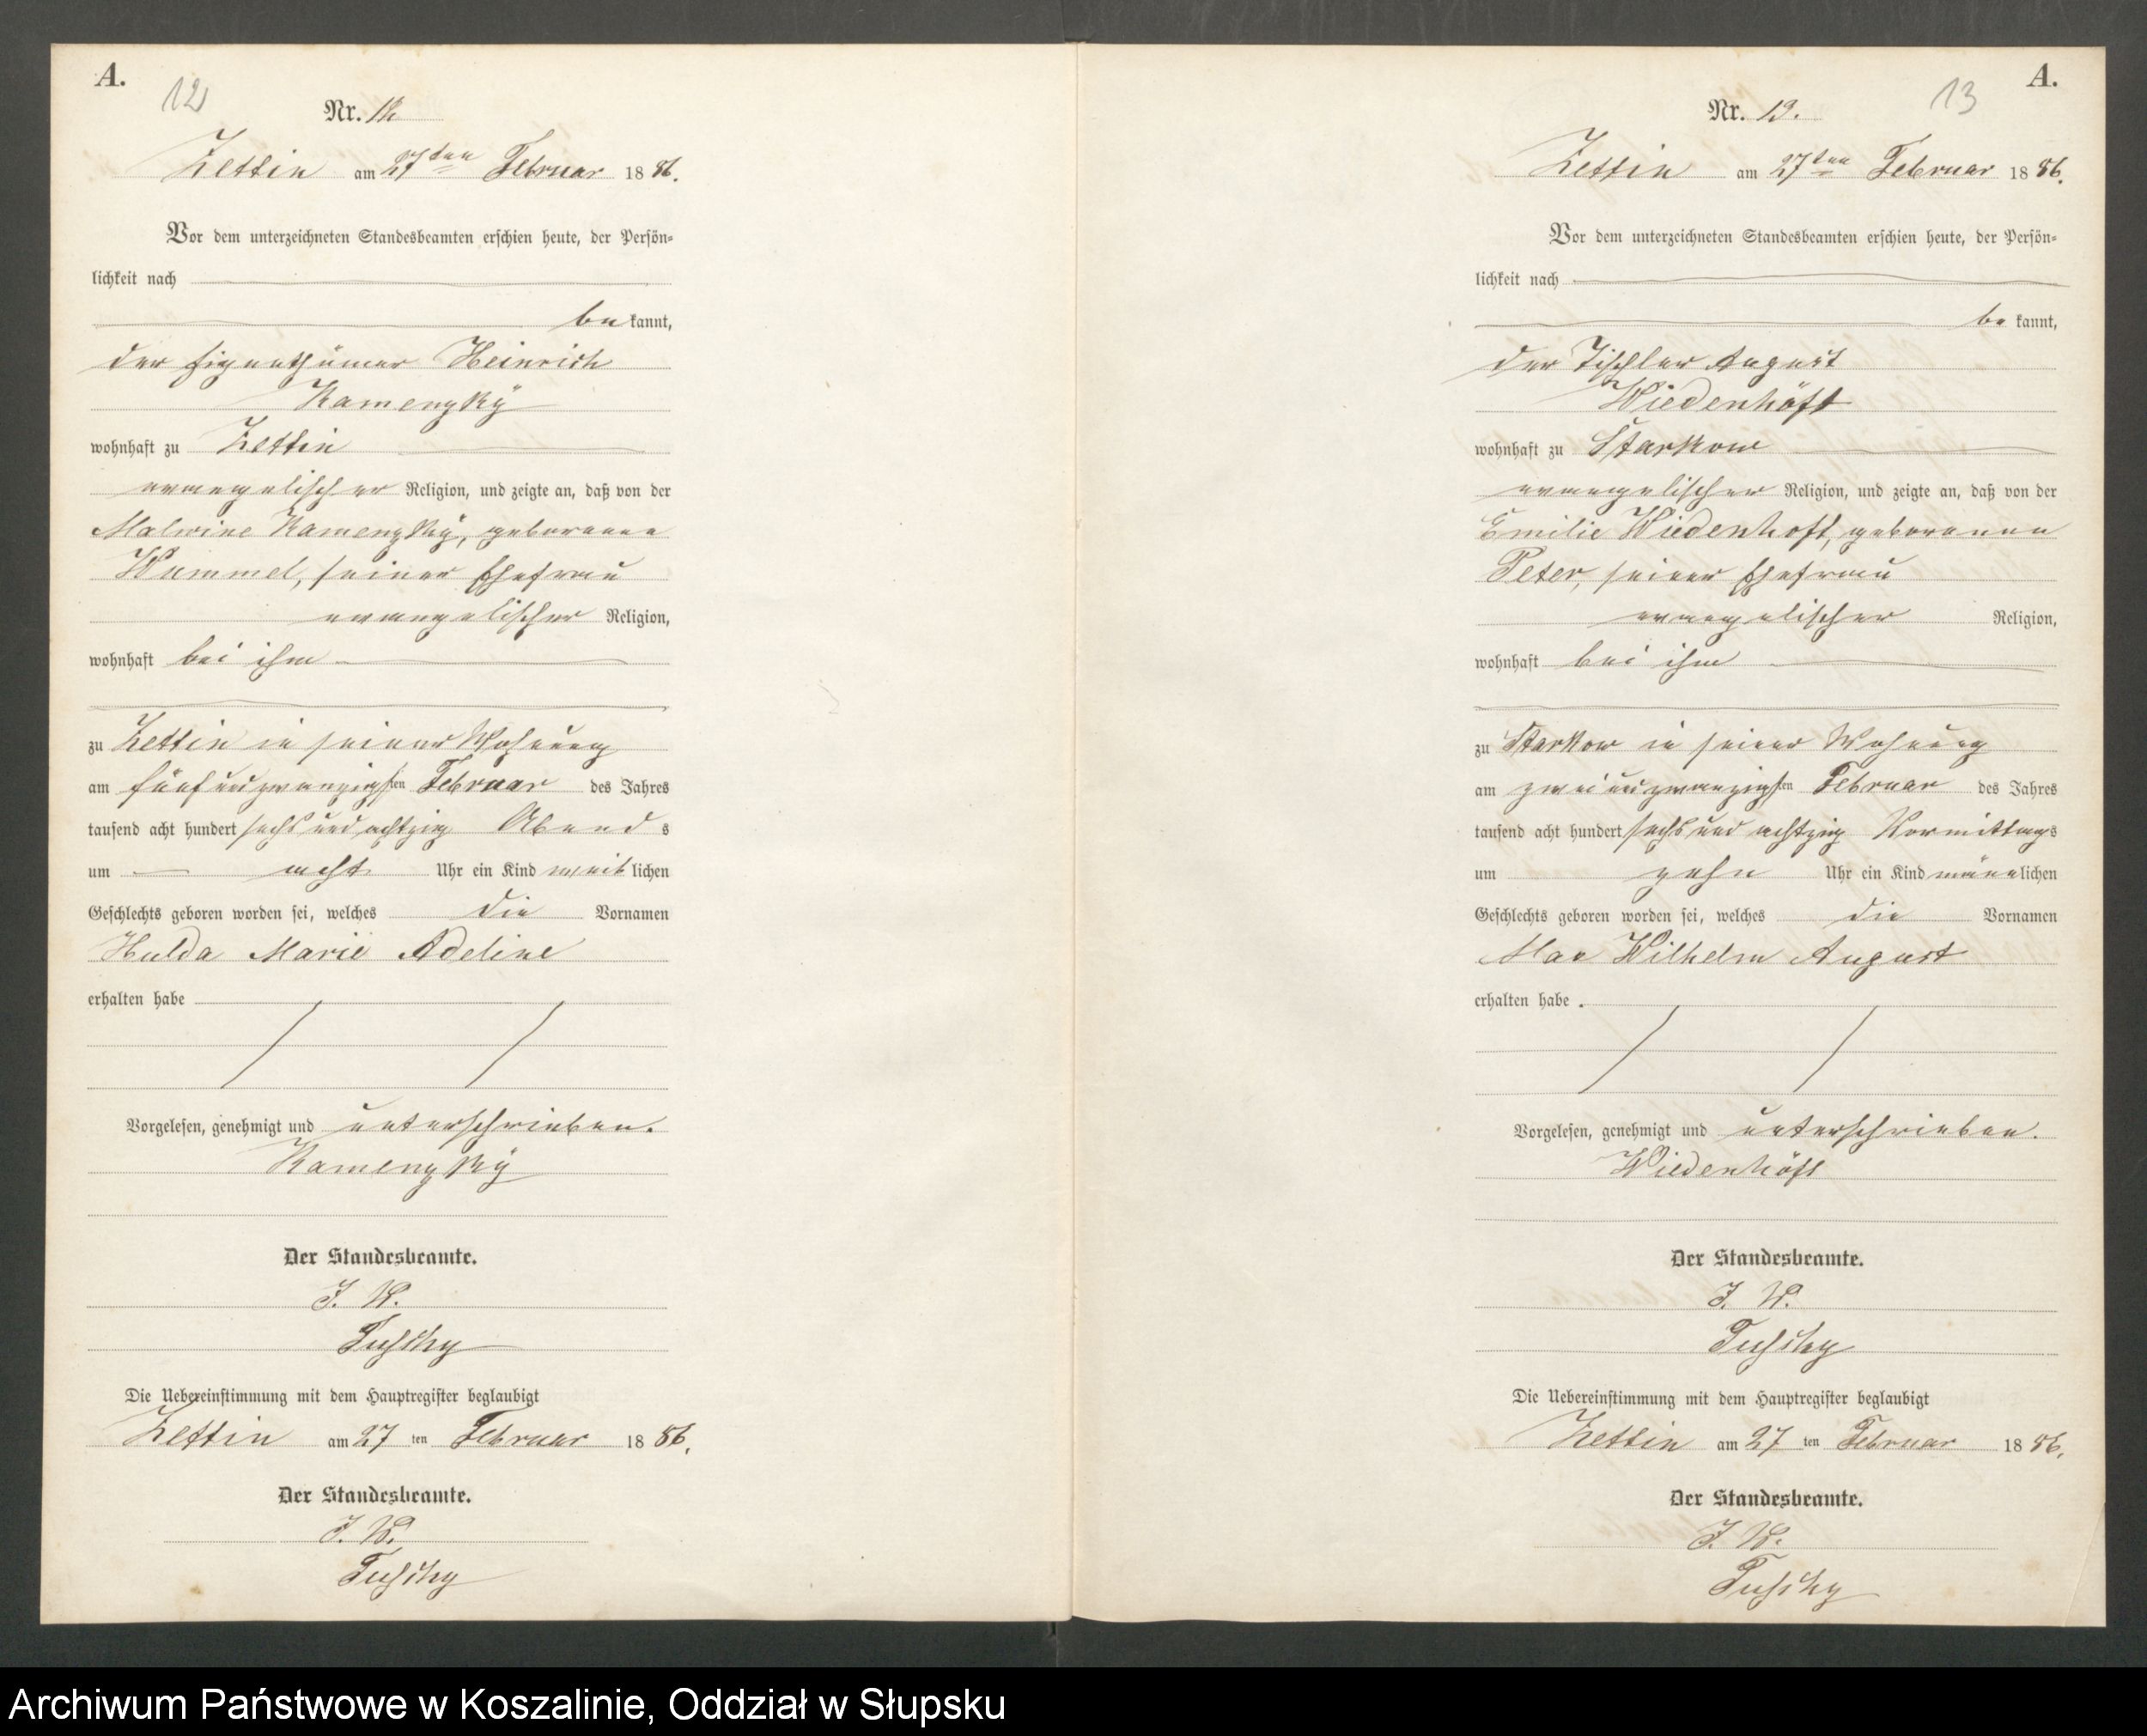 A.
12
Nr. 12
Zettin am 27ten Februar 1886.
Vor dem unterzeichneten Standesbeamten erschien heute, der Persön-
lichkeit nach
bekannt,
der Eigenthümer Heinrich
Kamenzky
wohnhaft zu Zettin
evangelischer Religion, und zeigte an, daß von der
Malwine Kamenzky, geborenen
Wummel, seiner Ehefrau
evangelischer Religion,
wohnhaft bei ihm
zu Zettin in seiner Wohnung
am fünfundzwanzigsten Februar des Jahres
tausend acht hundert sechs und achtzig Abends
um acht Uhr ein Kind weiblichen
Geschlechts geboren worden sei, welches die Vornamen
Hulda Marie Adeline
erhalten habe
Vorgelesen, genehmigt und unterschrieben.
Kamenzky
Der Standesbeamte.
J. V.
Die Uebereinstimmung mit dem Hauptregister beglaubigt
Zettin am 27 ten Februar 1886.
Der Standesbeamte.
J. V.
A.
13
Nr. 13.
Zettin am 27ten Februar 1886.
Vor dem unterzeichneten Standesbeamten erschien heute, der Persön-
lichkeit nach
bekannt,
der Tischler August
Wiedenhöft
wohnhaft zu Starkow
evangelischer Religion, und zeigte an, daß von der
Emilie Wiedenhoft, geborenen
Peter, seiner Ehefrau
evangelischer Religion,
wohnhaft bei ihm
zu Starkow in seiner Wohnung
am zweiundzwanzigsten Februar des Jahres
tausend acht hundert sechs und achtzig Vormittags
um zehn Uhr ein Kind männlichen
Geschlechts geboren worden sei, welches die Vornamen
Max Wilhelm August
erhalten habe.
Vorgelesen, genehmigt und unterschrieben.
Wiedenhöft
Der Standesbeamte.
J. V.
Die Uebereinstimmung mit dem Hauptregister beglaubigt
Zettin am 27 ten Februar 1886.
Der Standesbeamte.
J. V.
Archiwum Państwowe w Koszalinie, Oddział w Słupsku